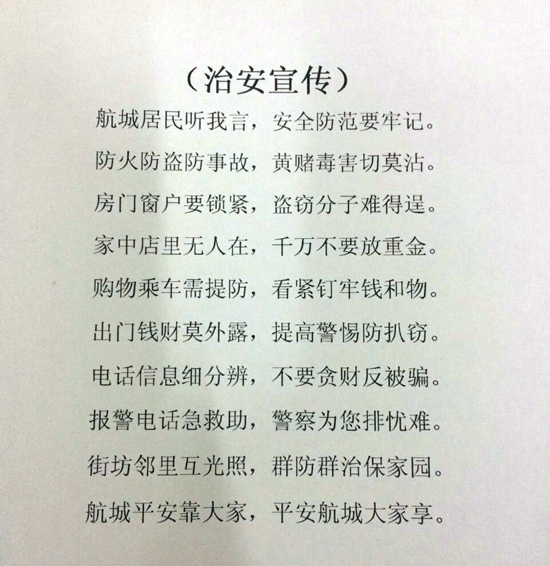 （治安宣传）
航城居民听我言，安全防范要牢记。
防火防盗防事故，黄赌毒害切莫沾。
房门窗户要锁紧，盗窃分子难得逞。
家中店里无人在，千万不要放重金。
购物乘车需提防，看紧钉牢钱和物。
出门钱财莫外露，提高警惕防扒窃。
电话信息细分辨，不要贪财反被骗。
报警电话急救助，警察为您排忧难。
街坊邻里互光照，群防群治保家园。
航城平安靠大家，平安航城大家享。